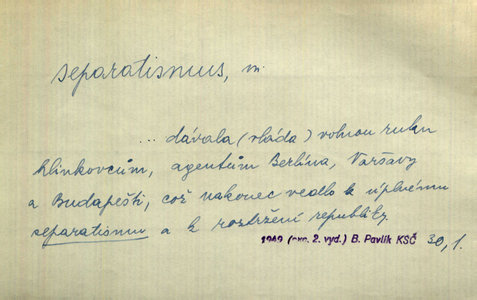 separatismus, m.
... dávala (vláda) volnou ruku
hlinkovcům, agentům Berlína, Varšavy
a Budapešti, což nakonec vedlo k úplnému
separatismu a k roztržení republiky
1949 (exc. 2. vyd.) B. Pavlík KSČ 30,1.